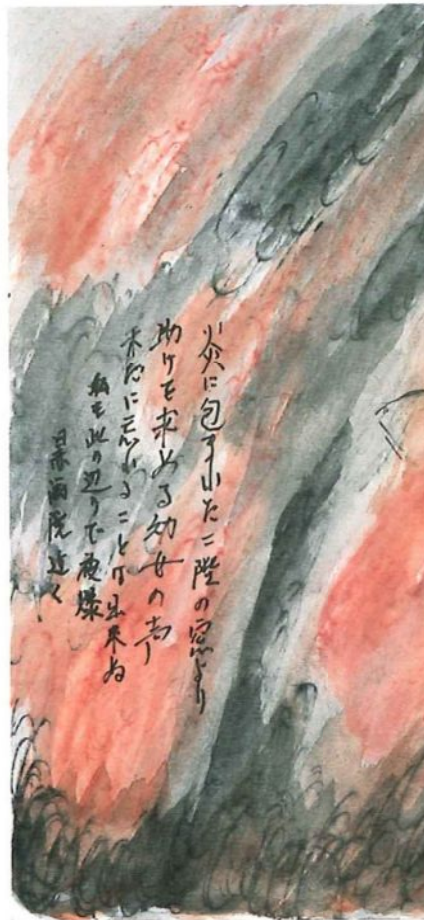 炎に包まれた二階の窓より
助けを求める幼女の声
未だに忘れることが出来ぬ
私も此の辺りで被爆
日赤病院近く